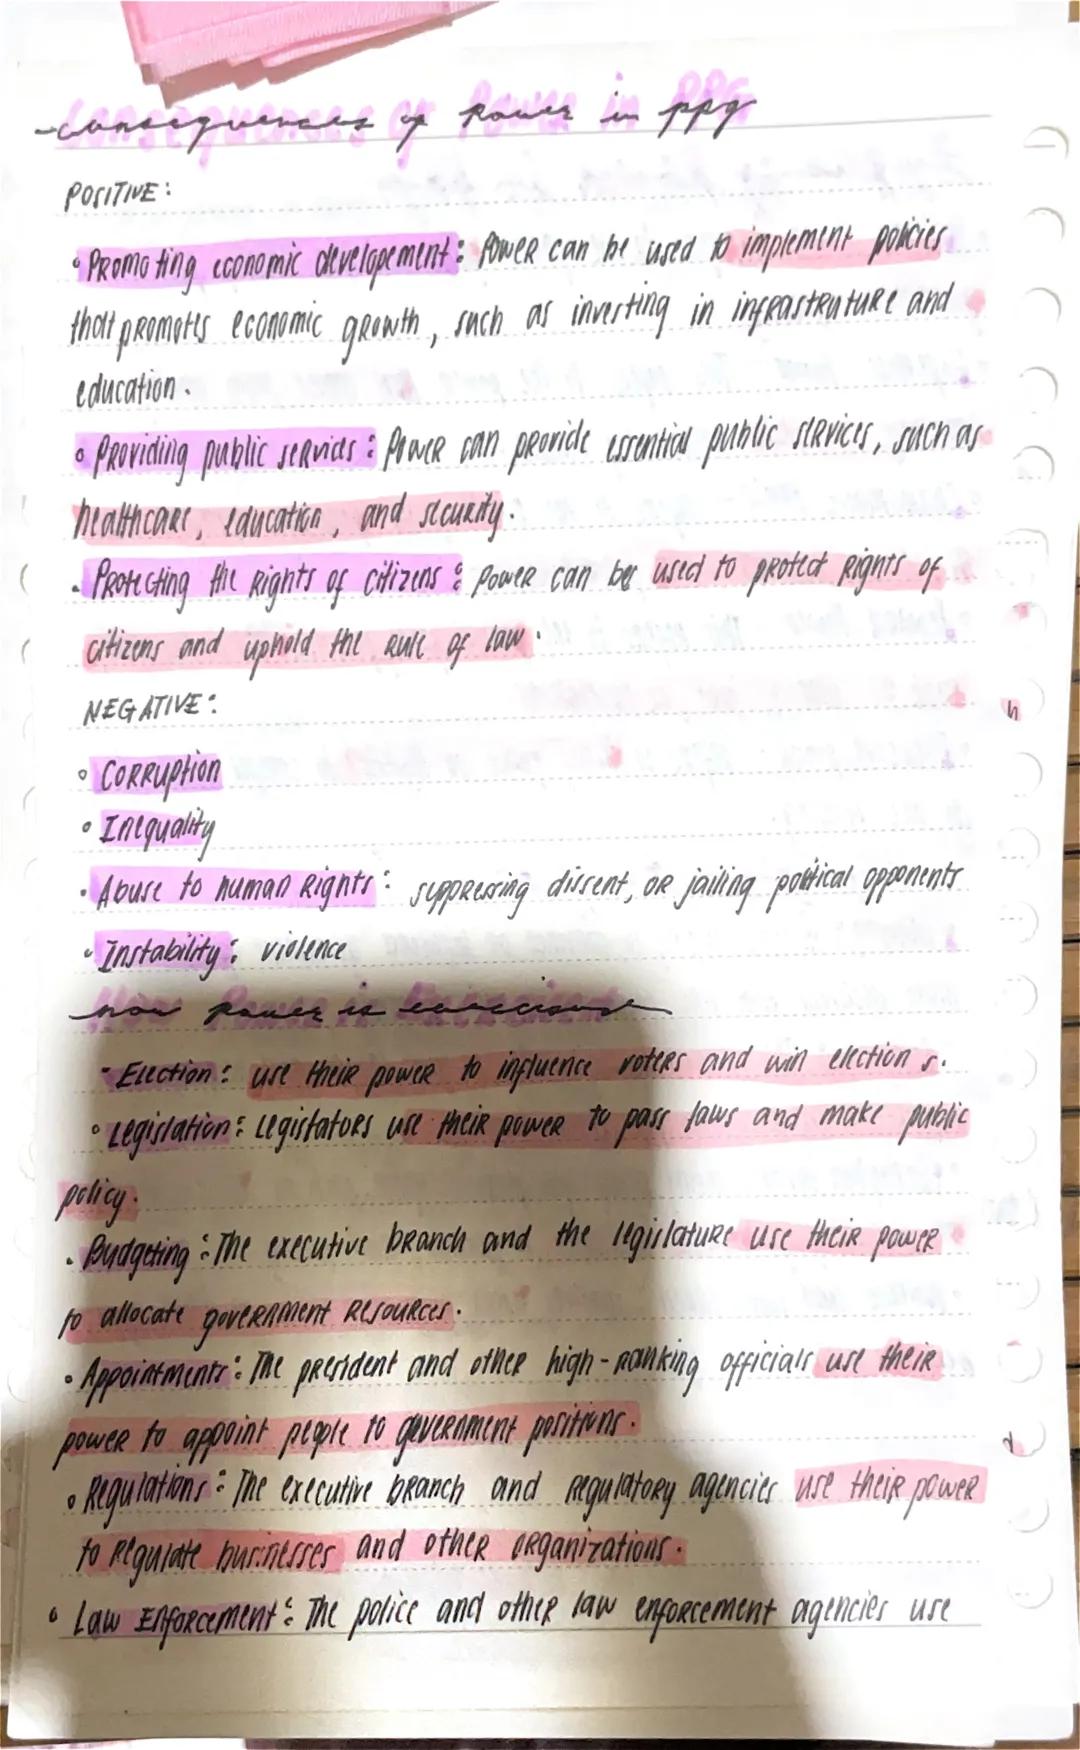 Consequences of Power in PPG
POSITIVE:
• Promoting economic developement: Power can be used to implement policies
that promotes economic growth, such as investing in infrastruture and
education.
• Providing public services: Power can provide essential public services, such as
healthcare, education, and security.
• Protecting the Rights of citizens: Power can be used to protect Rights of
citizens and uphold the Rule of law.
NEGATIVE:
• Corruption
• Inequality
• Abuse to human Rights: suppressing dissent, or jailing political opponents
• Instability: violence
How Power is Exercised
- Election: use their power to influence voters and win elections.
• Legislation: Legislators use their power to pass laws and make public
policy.
• Budgeting: The executive branch and the legislature use their power
to allocate government Resources.
• Appointments: The president and other high-ranking officials use their
power to appoint people to government positions.
• Regulations: The executive branch and Regulatory agencies use their power
to Regulate businesses and other organizations.
• Law Enforcement: The police and other law enforcement agencies use